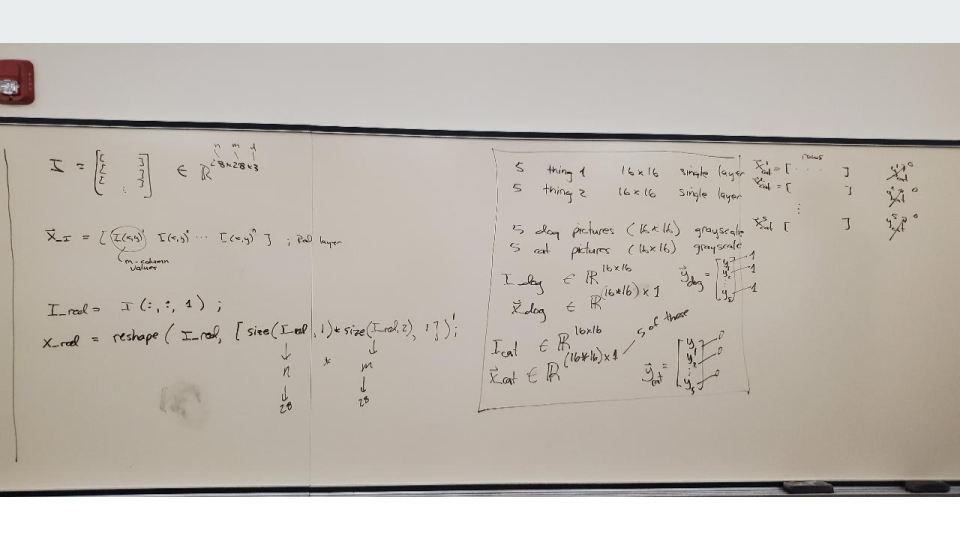 n m 1
I = [ [ ] [ ] [ ] ⋮ ] ∈ ℝ^28*28*3
X⃗_I = [ I(x,y)¹ I(x,y)² ... I(x,y)ⁿ ] ; Red layer
m-column
values
I_red = I(:,:,1) ;
X_red = reshape( I_red, [size(I_red,1)*size(I_red,2), 1])';
↓ ↓
n * m
↓ ↓
28 28
5 thing 1 16x16 single layer
5 thing 2 16x16 single layer
5 dog pictures (16*16) grayscale
5 cat pictures (16x16) grayscale
I_dog ∈ ℝ^16x16
x⃗_dog ∈ ℝ^(16*16)x1
y⃗_dog = [ y₁ y₂ ⋮ y₅ ] 1 1 1
I_cat ∈ ℝ^16x16
x⃗_cat ∈ ℝ^(16*16)x1 5 of these
y⃗_cat = [ y₁ y₂ ⋮ y₅ ] 0 0 0
X¹_cat = [ .... ]
X²_cat = [ ]
⋮
X⁵_cat [ ]